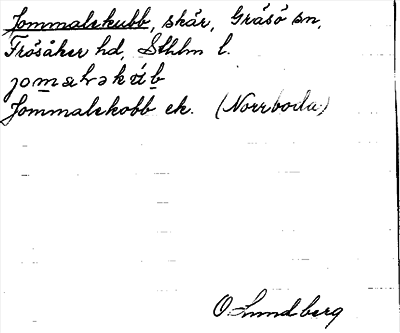 Jommalskubb, skär, Gräsö sn,
Frösåker hd, Sthlm l.
Jommalskobb ek. (Norrboda)
O Lundberg